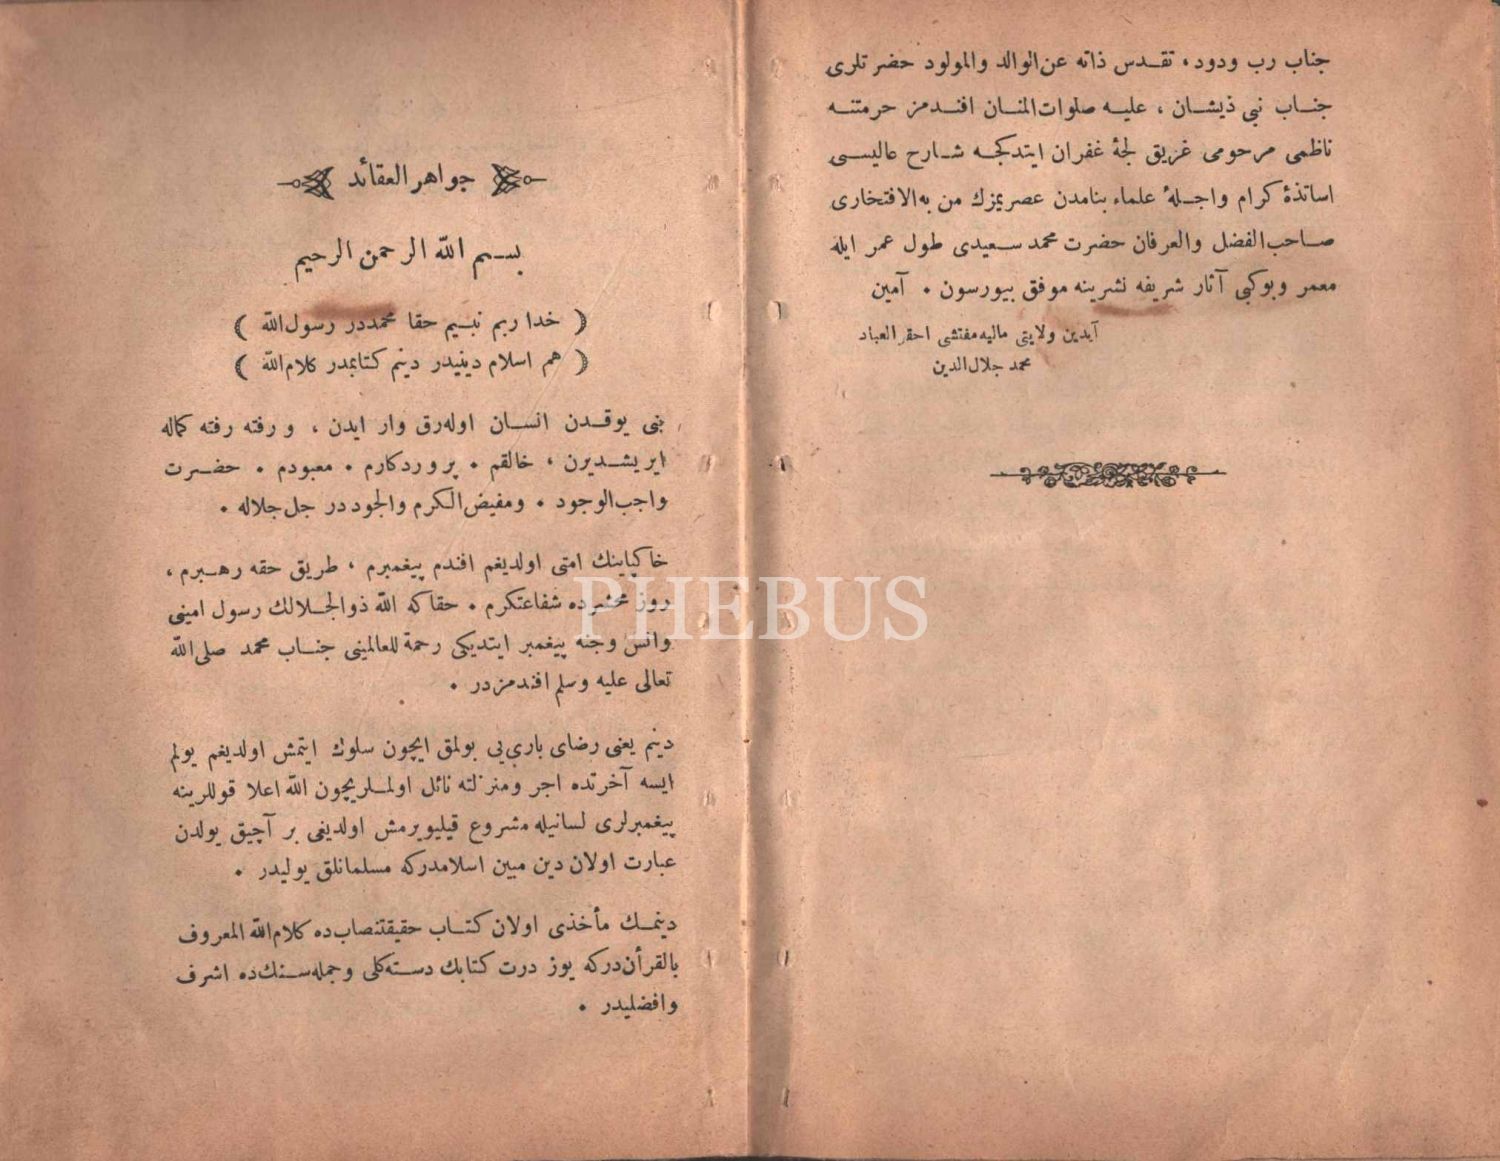 جناب رب ودود، تقدس ذاته عن‌الوالد والمولود حضرتلری
جناب نبی ذیشان ، علیه صلوات‌المنان افندمز حرمتنه
ناظمی مرحومی غریق لجهٔ غفران ایتدکجه شارح عالیسی
اساتذهٔ کرام واجلهٔ علماء بنامدن عصریمزك من به‌الافتخاری
صاحب‌الفضل والعرفان حضرت محمد سعیدی طول عمر ایله
معمر وبوکبی آثار شریفه نشرینه موفق بیورسون . آمین
آیدین ولایتی مالیه‌مفتشی احقر العباد
محمد جلال‌الدین
جواهر العقائد
بسم الله الرحمن الرحیم
( خدا ربم نبیم حقا محمددر رسول‌الله )
( هم اسلام دینیدر دینم کتابمدر کلام‌الله )
بنی یوقدن انسان اوله‌رق وار ایدن ، ورفته رفته کماله
ایریشدیرن ، خالقم . پروردکارم . معبودم . حضرت
واجب‌الوجود . ومفیض‌الکرم والجوددر جل جلاله .
خاکپاینك امتی اولدیغم افندم پیغمبرم ، طریق حقه رهبرم ،
روز محشرده شفاعتکرم . حقاکه الله ذوالجلالك رسول امینی
وانس وجنه پیغمبر ایتدیکی رحمة للعالمینی جناب محمد صلی‌الله
تعالی علیه وسلم افندمزدر .
دینم یعنی رضای باری‌یی بولمق ایچون سلوك ایتمش اولدیغم یولم
ایسه آخرتده اجر ومنزلته نائل اولملریچون الله اعلا قوللرینه
پیغمبرلری لسانیله مشروع قیلیویرمش اولدیغی بر آچیق یولدن
عبارت اولان دین مبین اسلامدرکه مسلمانلق یولیدر .
دینمك مأخذی اولان کتاب حقیقتنصاب‌ده کلام‌الله المعروف
بالقرأن‌درکه یوز درت کتابك دسته‌کلی وجمله‌سنك‌ده اشرف
وافضلیدر .
PHEBUS